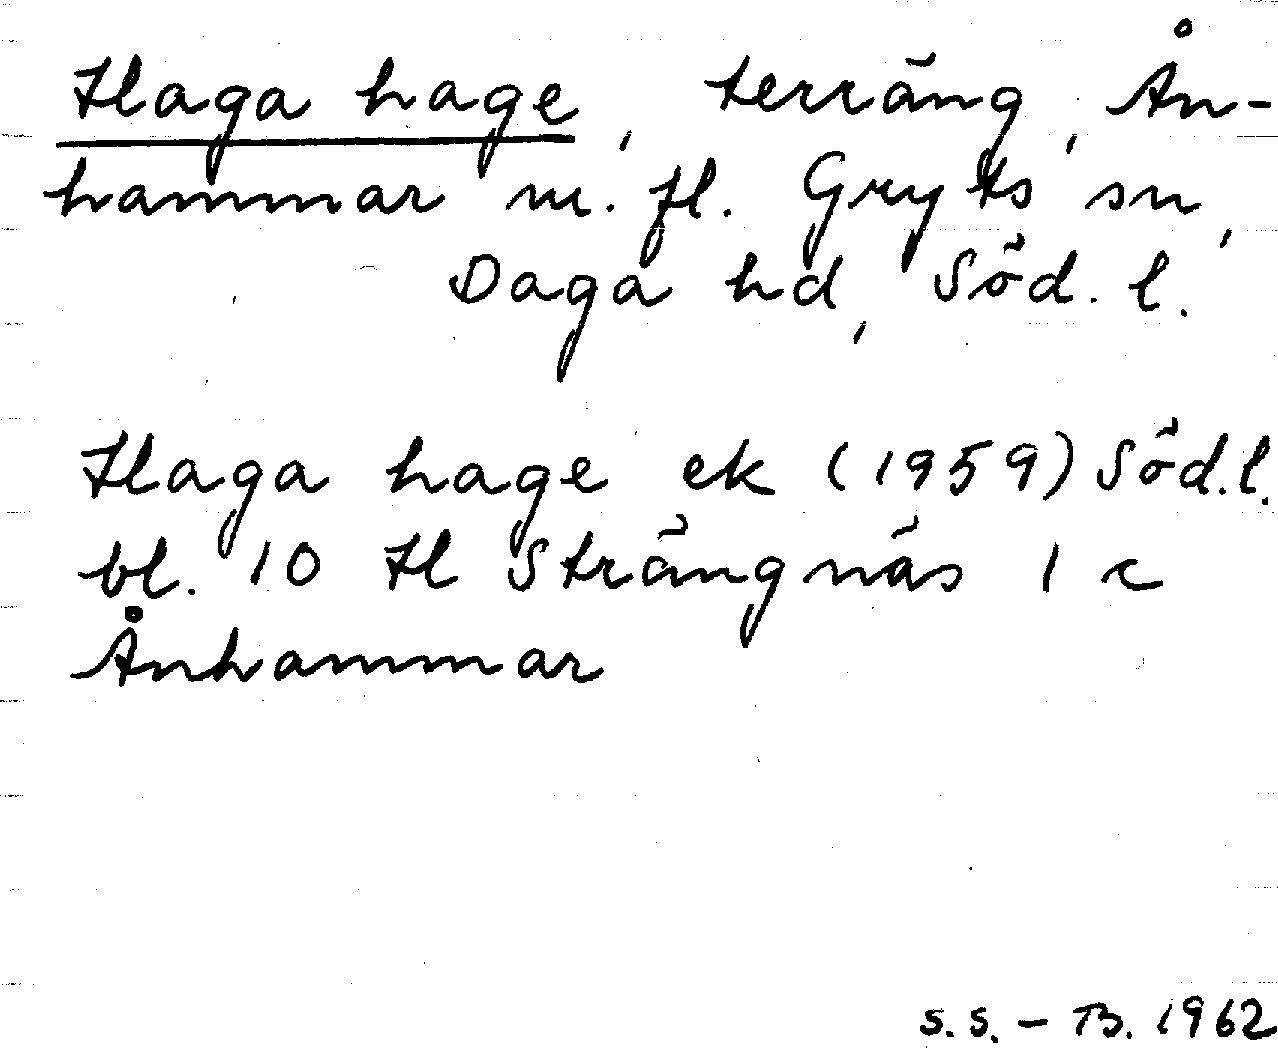 Haga hage, terräng, Ån-
hammar m. fl. Gryts sn,
Daga hd, Söd. l.
Haga hage ek (1959) Söd. l.
bl. 10 H Strängnäs 1 c
Ånhammar
S.S. – B. 1962